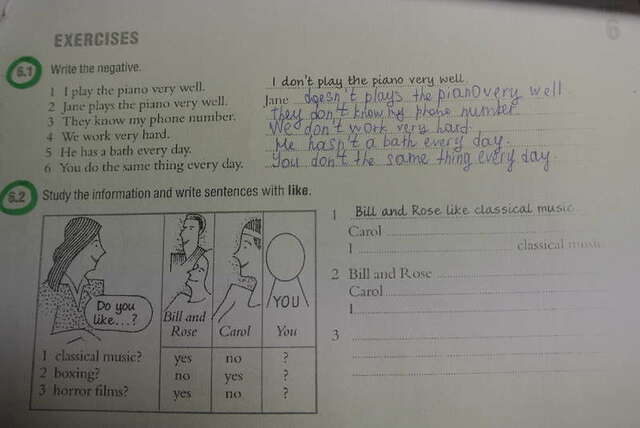 6
EXERCISES
6.1 Write the negative.
1 I play the piano very well. I don't play the piano very well.
2 Jane plays the piano very well. Jane doesn't plays the piano very well
3 They know my phone number. They don't know my phone number.
4 We work very hard. We don't work very hard.
5 He has a bath every day. He hasn't a bath every day.
6 You do the same thing every day. You don't the same thing every day.
6.2 Study the information and write sentences with like.
Do you like...?
Bill and Rose
Carol
You
YOU
1 classical music? yes no ?
2 boxing? no yes ?
3 horror films? yes no ?
1 Bill and Rose like classical music.
Carol
I classical music.
2 Bill and Rose
Carol
I
3